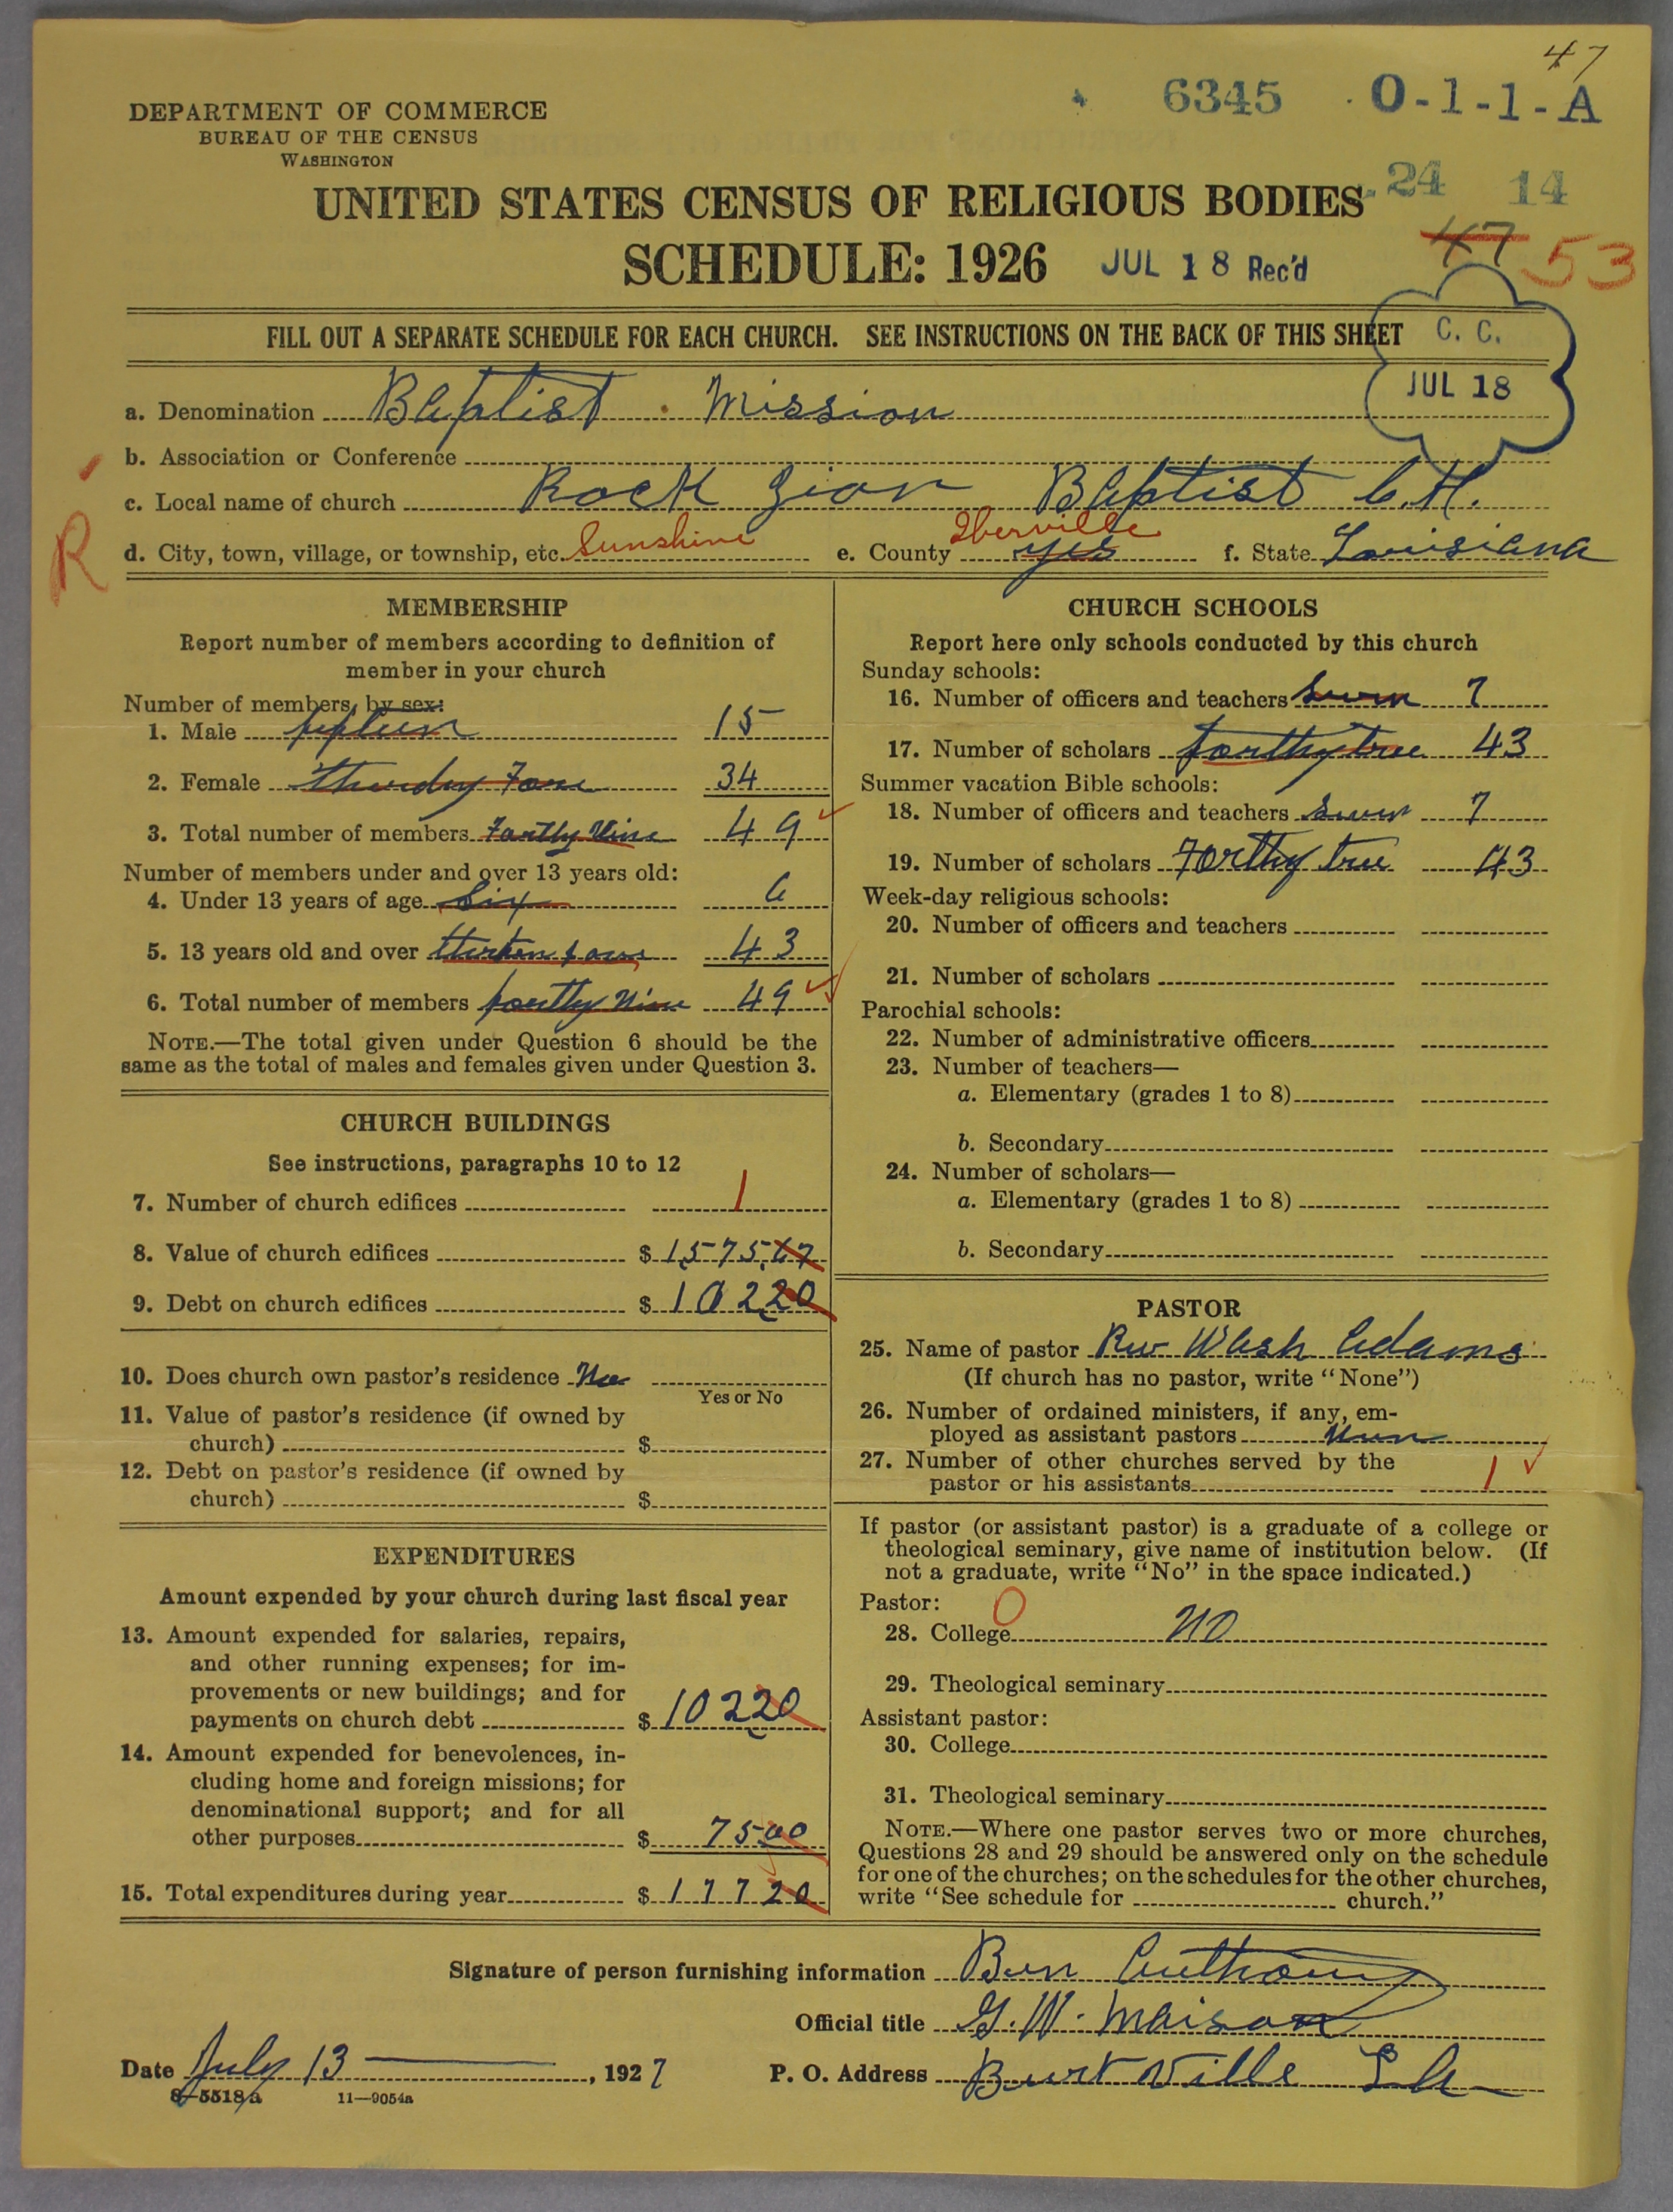 47
6345 O-1-1-A
DEPARTMENT OF COMMERCE
BUREAU OF THE CENSUS
WASHINGTON
24 14
UNITED STATES CENSUS OF RELIGIOUS BODIES
47 53
SCHEDULE: 1926 JUL 18 Rec'd
FILL OUT A SEPARATE SCHEDULE FOR EACH CHURCH. SEE INSTRUCTIONS ON THE BACK OF THIS SHEET
C. C.
JUL 18
a. Denomination Baptist Mission
b. Association or Conference
c. Local name of church Rock Zion Baptist C.H.
R
d. City, town, village, or township, etc. Sunshine e. County Iberville yes f. State Louisiana
MEMBERSHIP
Report number of members according to definition of
member in your church
Number of members, by sex:
1. Male 15
2. Female 34
3. Total number of members 49
Number of members under and over 13 years old:
4. Under 13 years of age Six 6
5. 13 years old and over 43
6. Total number of members 49
NOTE.—The total given under Question 6 should be the
same as the total of males and females given under Question 3.
CHURCH BUILDINGS
See instructions, paragraphs 10 to 12
7. Number of church edifices 1
8. Value of church edifices $ 157567
9. Debt on church edifices $ 10220
10. Does church own pastor's residence
Yes or No
11. Value of pastor's residence (if owned by
church) $
12. Debt on pastor's residence (if owned by
church) $
EXPENDITURES
Amount expended by your church during last fiscal year
13. Amount expended for salaries, repairs,
and other running expenses; for im-
provements or new buildings; and for
payments on church debt $ 10220
14. Amount expended for benevolences, in-
cluding home and foreign missions; for
denominational support; and for all
other purposes $ 7500
15. Total expenditures during year $ 17720
CHURCH SCHOOLS
Report here only schools conducted by this church
Sunday schools:
16. Number of officers and teachers 7
17. Number of scholars 43
Summer vacation Bible schools:
18. Number of officers and teachers 7
19. Number of scholars Forthy tree 43
Week-day religious schools:
20. Number of officers and teachers
21. Number of scholars
Parochial schools:
22. Number of administrative officers
23. Number of teachers—
a. Elementary (grades 1 to 8)
b. Secondary
24. Number of scholars—
a. Elementary (grades 1 to 8)
b. Secondary
PASTOR
25. Name of pastor Rev Wash Adams
(If church has no pastor, write "None")
26. Number of ordained ministers, if any, em-
ployed as assistant pastors
27. Number of other churches served by the
pastor or his assistants 1
If pastor (or assistant pastor) is a graduate of a college or
theological seminary, give name of institution below. (If
not a graduate, write "No" in the space indicated.)
Pastor: 0
28. College no
29. Theological seminary
Assistant pastor:
30. College
31. Theological seminary
NOTE.—Where one pastor serves two or more churches,
Questions 28 and 29 should be answered only on the schedule
for one of the churches; on the schedules for the other churches,
write "See schedule for church."
Signature of person furnishing information Ben Anthony
Official title G. W. Maison
Date July 13, 1927 P. O. Address Burtville La
8-5518a 11—9054a